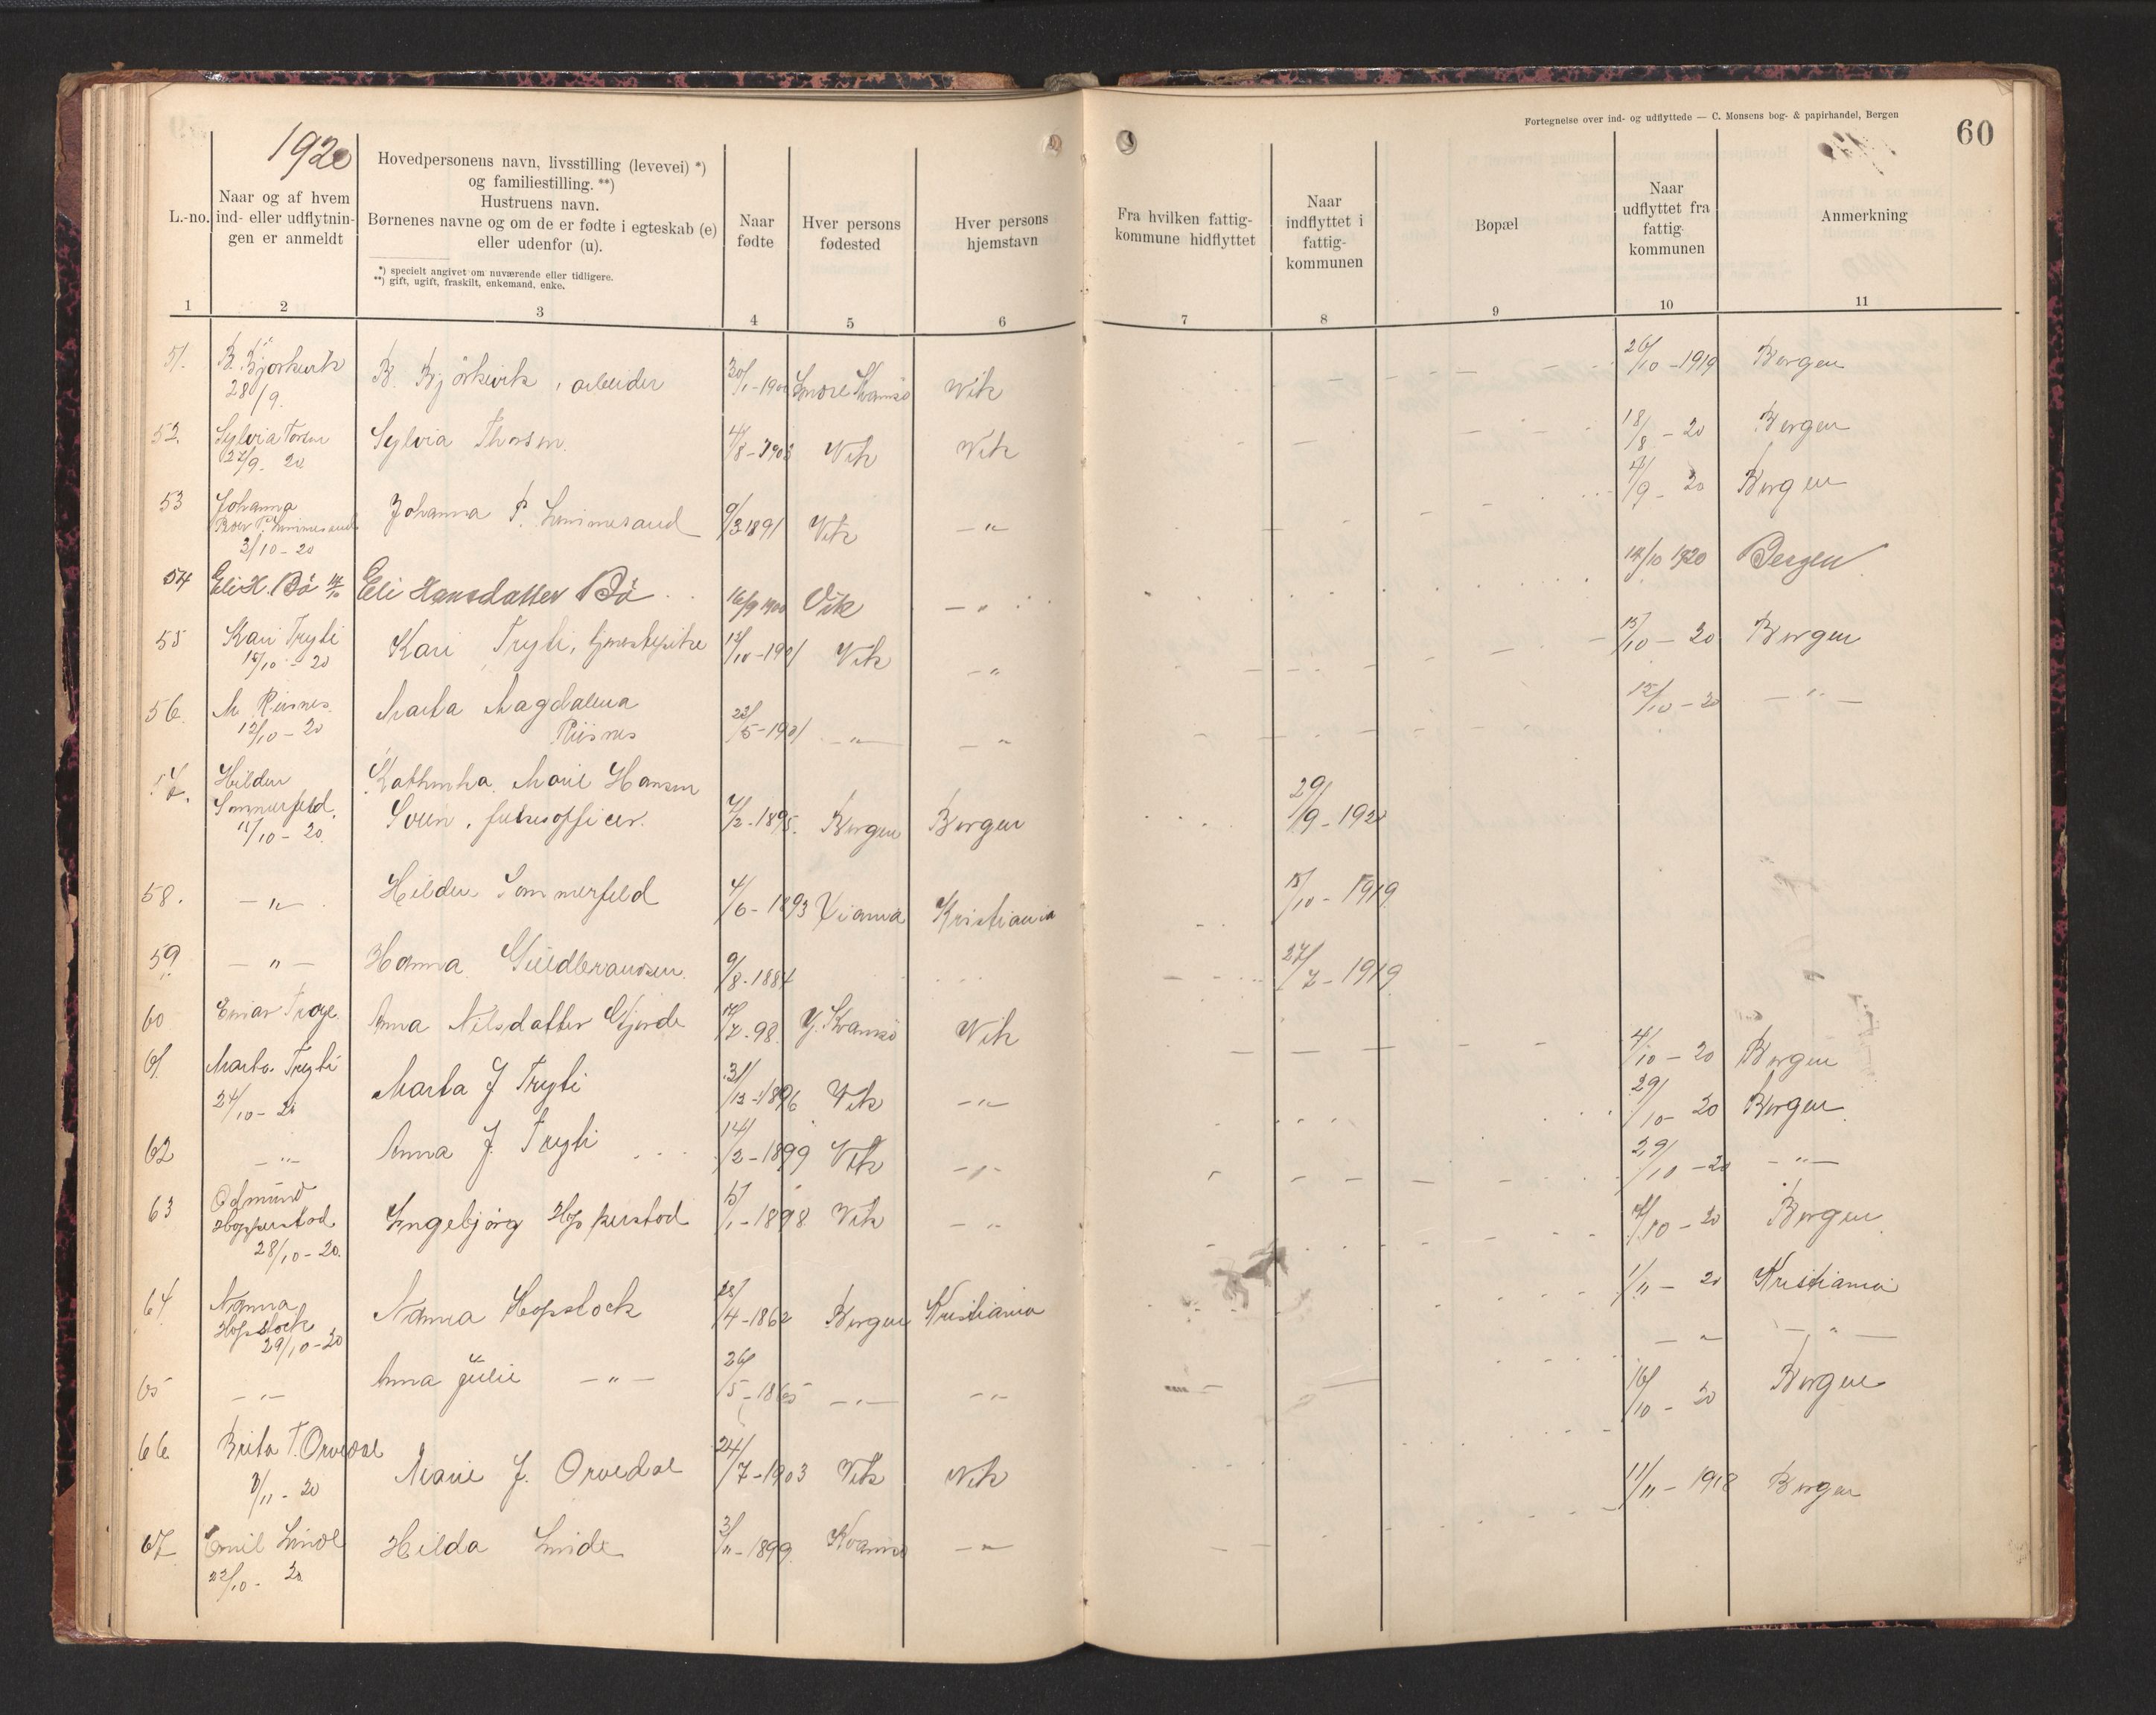 Fortegnelse over ind- og udflyttede — C. Monsens bog- & papirhandel, Bergen
60
1920
L.-no.
Naar og af hvem
ind- eller udflytnin-
gen er anmeldt
Hovedpersonens navn, livsstilling (levevei) *)
og familiestilling. **)
Hustruens navn.
Børnenes navne og om de er fødte i egteskab (e)
eller udenfor (u).
*) specielt angivet om nuværende eller tidligere.
**) gift, ugift, fraskilt, enkemand, enke.
Naar
fødte
Hver persons
fødested
Hver persons
hjemstavn
Fra hvilken fattig-
kommune hidflyttet
Naar
indflyttet i
fattig-
kommunen
Bopæl
Naar
udflyttet fra
fattig-
kommunen
Anmerkning
1 2 3 4 5 6 7 8 9 10 11
51. B. Björkevik B. Björkevik, arbeider 30/1-1900 Vik 26/10-1919 Bergen
28/9.
52. Sylvia Torsen Sylvia Thorsen. 4/8-1903 Vik Vik 18/8-20 Bergen
27/9. 20
53 Johanna Johanna P. 9/3 1891 Vik —„ 4/9-20 Bergen
2/10-20
54 Eli H. Bö 14/10 Eli Hansdatter Bö 16/9 1900 Vik —„ 14/10 1920 Bergen
55 Kari Tryti Kari Tryti, 13/10-1901 Vik —„ 15/10-20 Bergen
15/10-20
56. M Riisnes. Marta Magdalena 15/10-20 —„—
12/10-20 Riisnes 22/5-1901 —„— —„
57. Hilden Marie Hansen
Sommerfeld. Soen. 4/2-1895. Bergen Bergen 29/9-192
15/10-20.
58. —„—. Hilden Sommerfeld 4/6-1893 Xiania Kristiania 15/10-1919
59 —„— Hanna Guldbrandsen 9/8-1884 27/7-1919
60 Einar Anna Nilsdatter Gjerde 17/7-98. Y. Kvamsö Vik 4/10-20 Bergen
61. Marta Tryti Marta J Tryti 31/12-1896 Vik —„— 29/10-20 Bergen
24/10-20
62 —„— Anna J. Tryti 14/2-1899 Vik —„— 29/10-20 —„—
63 Odmund Ingebjörg Hopperstad 15/1-1898 Vik —„ 14/10-20 Bergen
Hopperstad
28/10-20.
64 Nanna Nanna Hopstock 28/4-1862 Bergen Kristiania 1/11-20 Kristiania
Hopstock
29/10-20
65 —„— Anna Julie —„— 26/5-1865 —„— —„— —„ —„—
66 Brita T. Orvedal Marie J. Orvedal 24/7-1903 Vik Vik 16/10-20 Bergen
8/11-20
67 Emil Linde Hilda Linde 3/11-1899 Kvamsö —„ 11/11-1918 Bergen
22/10-20